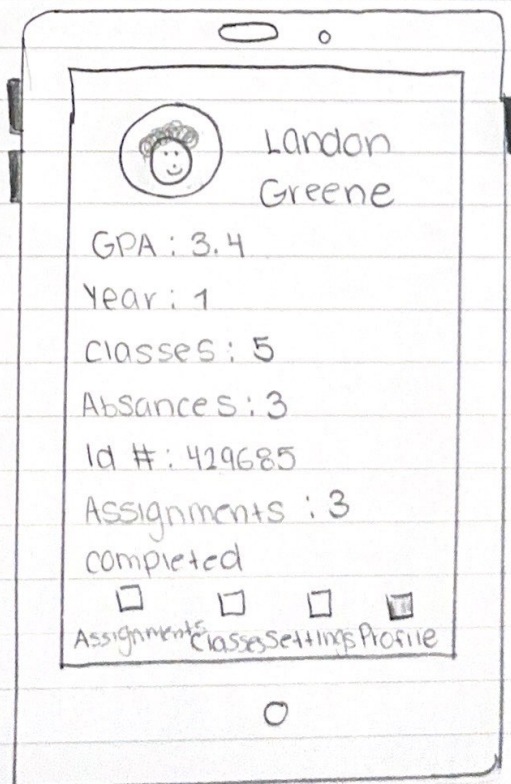 Landon
Greene
GPA: 3.4
Year: 1
Classes: 5
Absances: 3
Id #: 429685
Assignments: 3
completed
Assignments Classes Settings Profile